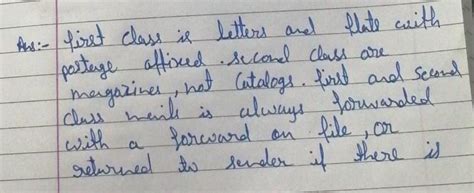 Ans:- first class is letters and flats with
postage affixed. second class are
magazines, not catalogs. first and second
class mails is always forwarded
with a forward on file, or
returned to sender if there is